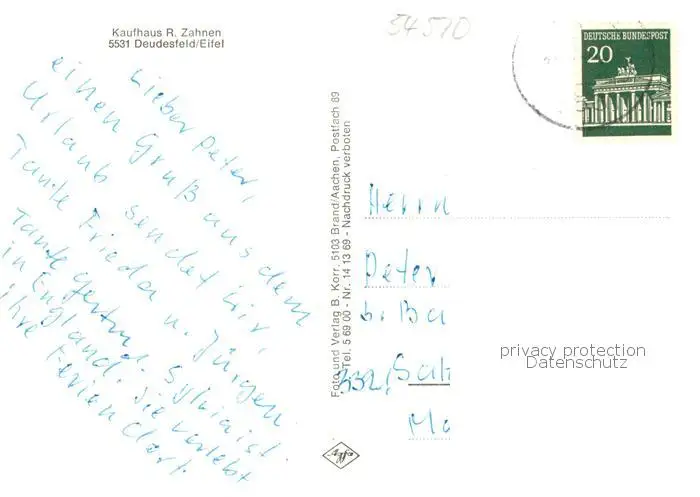 Kaufhaus R. Zahnen
5531 Deudesfeld/Eifel
54570
DEUTSCHE BUNDESPOST
20
Lieber Peter,
einen Gruß aus dem
Urlaub sendet Dir,
Tante Frieda u. Jürgen
Tante Gertrud. Sylvia ist
in England. Sie verlebt
ihre Ferien dort.
Foto und Verlag B. Kerr, 5103 Brand/Aachen, Postfach 89
Tel. 5 69 00 - Nr. 14 13 69 - Nachdruck verboten
Herrn
Peter
b. Ba
332 Salz
Agfa
privacy protection
Datenschutz